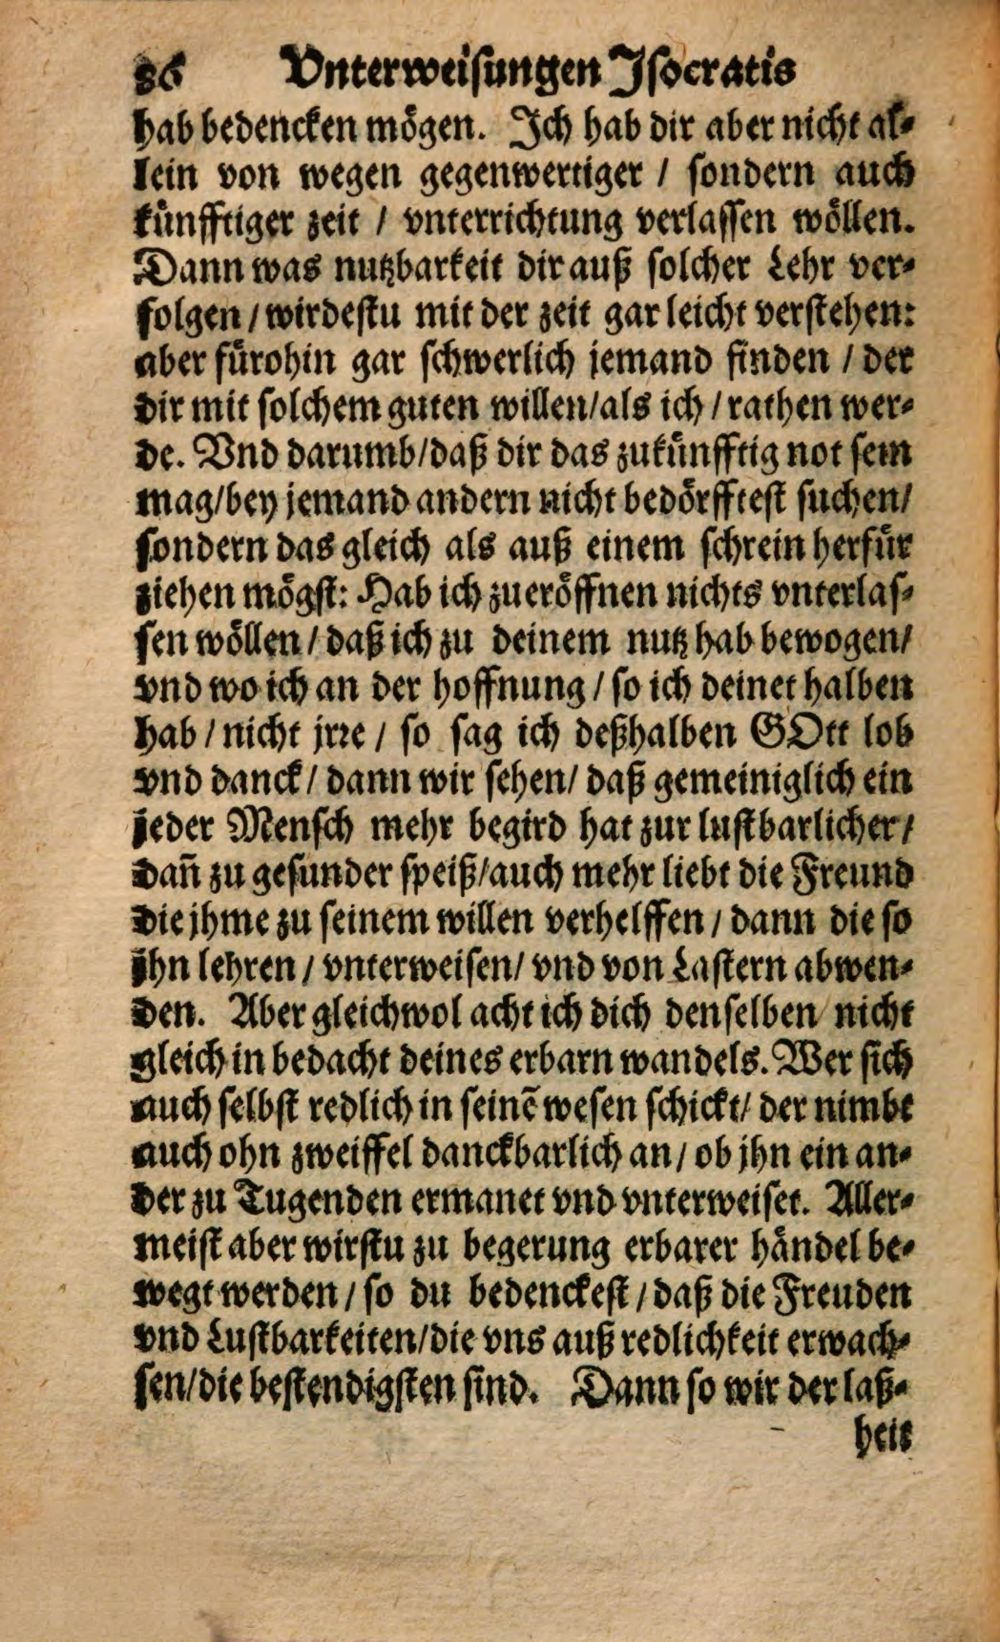 86 Vnterweisungen Isocratis
hab bedencken mögen. Ich hab dir aber nicht al-
lein von wegen gegenwertiger / sondern auch
künfftiger zeit / vnterrichtung verlassen wöllen.
Dann was nutzbarkeit dir auß solcher Lehr ver-
folgen / wirdestu mit der zeit gar leicht verstehen:
aber fürohin gar schwerlich jemand finden / der
dir mit solchem guten willen / als ich / rathen wer-
de. Vnd darumb / daß dir das zukünfftig not sein
mag / bey jemand andern nicht bedörfftest suchen /
sondern das gleich als auß einem schrein herfür
ziehen mögst: Hab ich zueröffnen nichts vnterlas-
sen wöllen / daß ich zu deinem nutz hab bewogen /
vnd wo ich an der hoffnung / so ich deinet halben
hab / nicht jrre / so sag ich deßhalben GOtt lob
vnd danck / dann wir sehen / daß gemeiniglich ein
jeder Mensch mehr begird hat zur lustbarlicher /
dañ zu gesunder speiß / auch mehr liebt die Freund
die jhme zu seinem willen verhelffen / dann die so
jhn lehren / vnterweisen / vnd von Lastern abwen-
den. Aber gleichwol acht ich dich denselben nicht
gleich in bedacht deines erbarn wandels. Wer sich
auch selbst redlich in seinē wesen schickt / der nimbt
auch ohn zweiffel danckbarlich an / ob jhn ein an-
der zu Tugenden ermanet vnd vnterweiset. Aller-
meist aber wirstu zu begerung erbarer händel be-
wegt werden / so du bedenckest / daß die Freuden
vnd Lustbarkeiten / die vns auß redlichkeit erwach-
sen / die bestendigsten sind. Dann so wir der laß-
heit